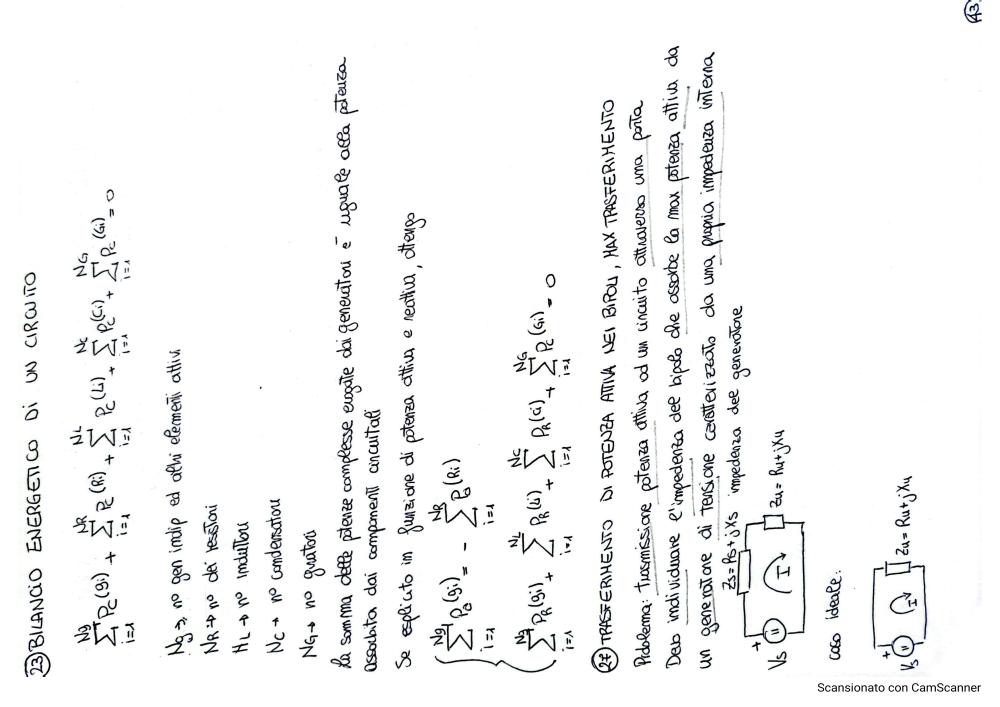 23 BILANCIO ENERGETICO DI UN CIRCUITO
Ng∑i=1 Pc(gi) + NR∑i=1 Pc(Ri) + NL∑i=1 Pc(Li) + Nc∑i=1 Pc(Ci) + NG∑i=1 Pc(Gi) = 0
Ng → n° gen indip ed altri elementi attivi
NR → n° dei resistori
HL → n° induttori
Nc → n° condensatori
NG → n° giratori
La somma delle potenze complesse erogate dai generatori è uguale alla potenza
assorbita dai componenti circuitali
Se esplicito in funzione di potenza attiva e reattiva, ottengo
Ng∑i=1 Pa(gi) = - NR∑i=1 Pa(Ri)
Ng∑i=1 PR(gi) + NL∑i=1 PR(Li) + NC∑i=1 PR(Ci) + NG∑i=1 Pc(Gi) = 0
27 TRASFERIMENTO DI POTENZA ATTIVA NEI BIPOLI, MAX TRASFERIMENTO
Problema: Trasmissione potenza attiva ad un circuito attraverso una porta
Devo individuare l'impedenza del bipolo che assorbe la max potenza attiva da
un generatore di tensione caratterizzato da una propria impedenza interna
Zs = Rs + jXs impedenza del generatore
+ Vs I Zu = Ru + jXu
caso ideale:
+ Vs I Zu = Ru + jXu
A3
Scansionato con CamScanner